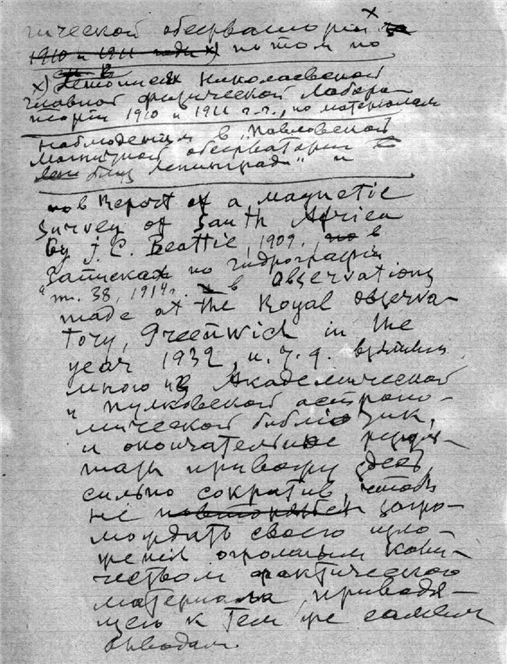 гической обсерватории х
1910 и 1911 годы х) потом по
х) Летописях Николаевской
главной физической Лабора-
тории 1910 и 1911 г.г., по материалам
наблюдений в „Павловской
магнитной обсерватории
близ Ленинграда" и
по в Report of a magnetic
Survey of South Africa
by J. C. Beattie, 1909. в
Записках по гидрографии
т. 38, 1914г. в Observations
made at the Royal Observa-
tory, Greenwich in the
year 1932, и. т. д. взятых
мною из Академической
и Пулковской астроно-
мической библиотек,
и окончательные резуль-
таты привожу здесь,
сильно сократив, чтобы
не повторяться загро-
мождать своего изло-
жения огромным коли-
чеством фактического
материала приводя-
щего к тем же самым
выводам.